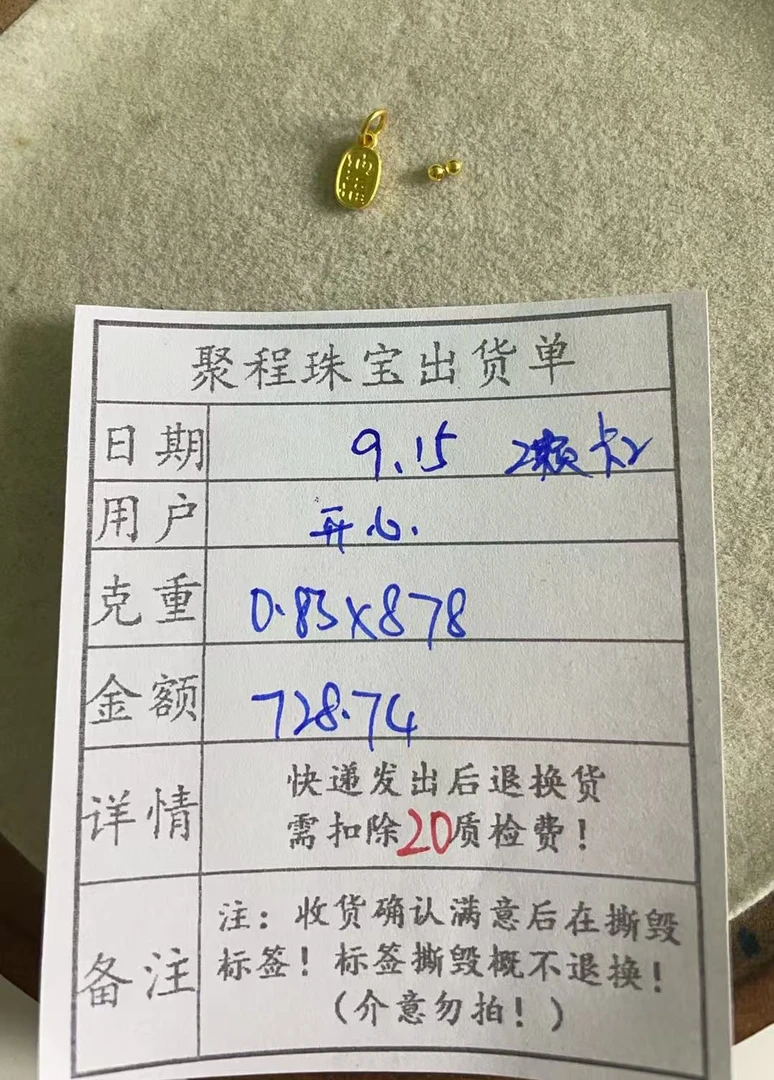 聚程珠宝出货单
日期 9.15 2颗卡2
用户 开心.
克重 0.83×878
金额 728.74
详情 快递发出后退换货
需扣除20质检费!
备注 注:收货确认满意后在撕毁
标签!标签撕毁概不退换!
(介意勿拍!)